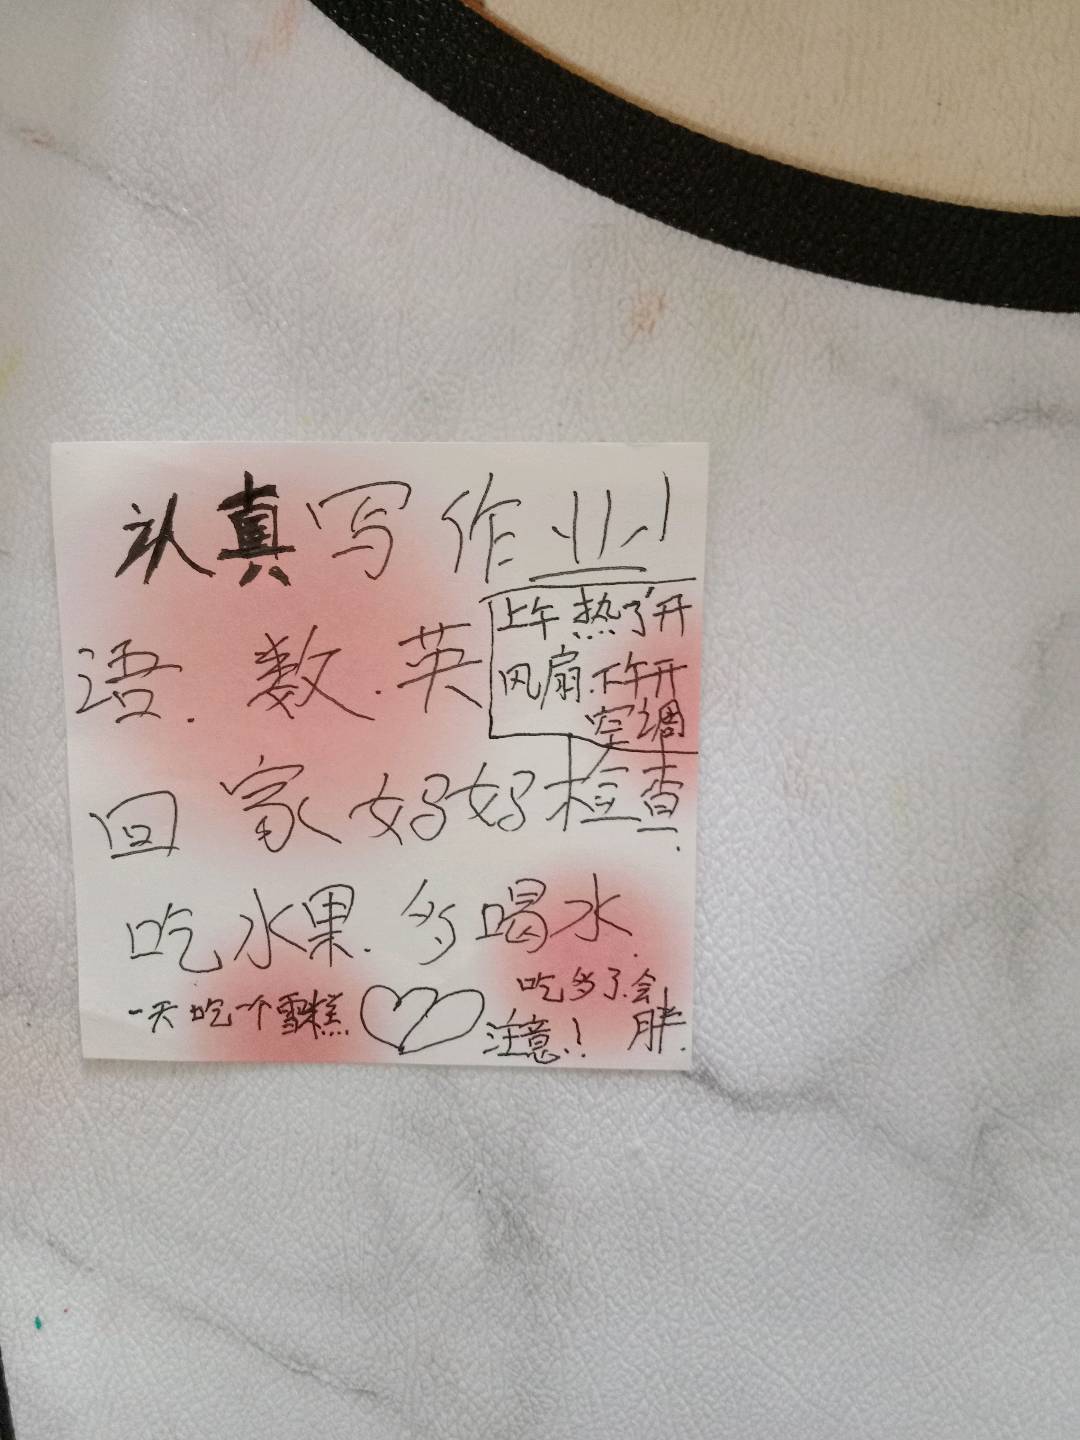 认真写作业!
语.数.英
上午热了开
风扇.下午开
空调
回家好好检查.
吃水果.多喝水.
一天吃一个雪糕
吃多了.会
胖.
注意.!